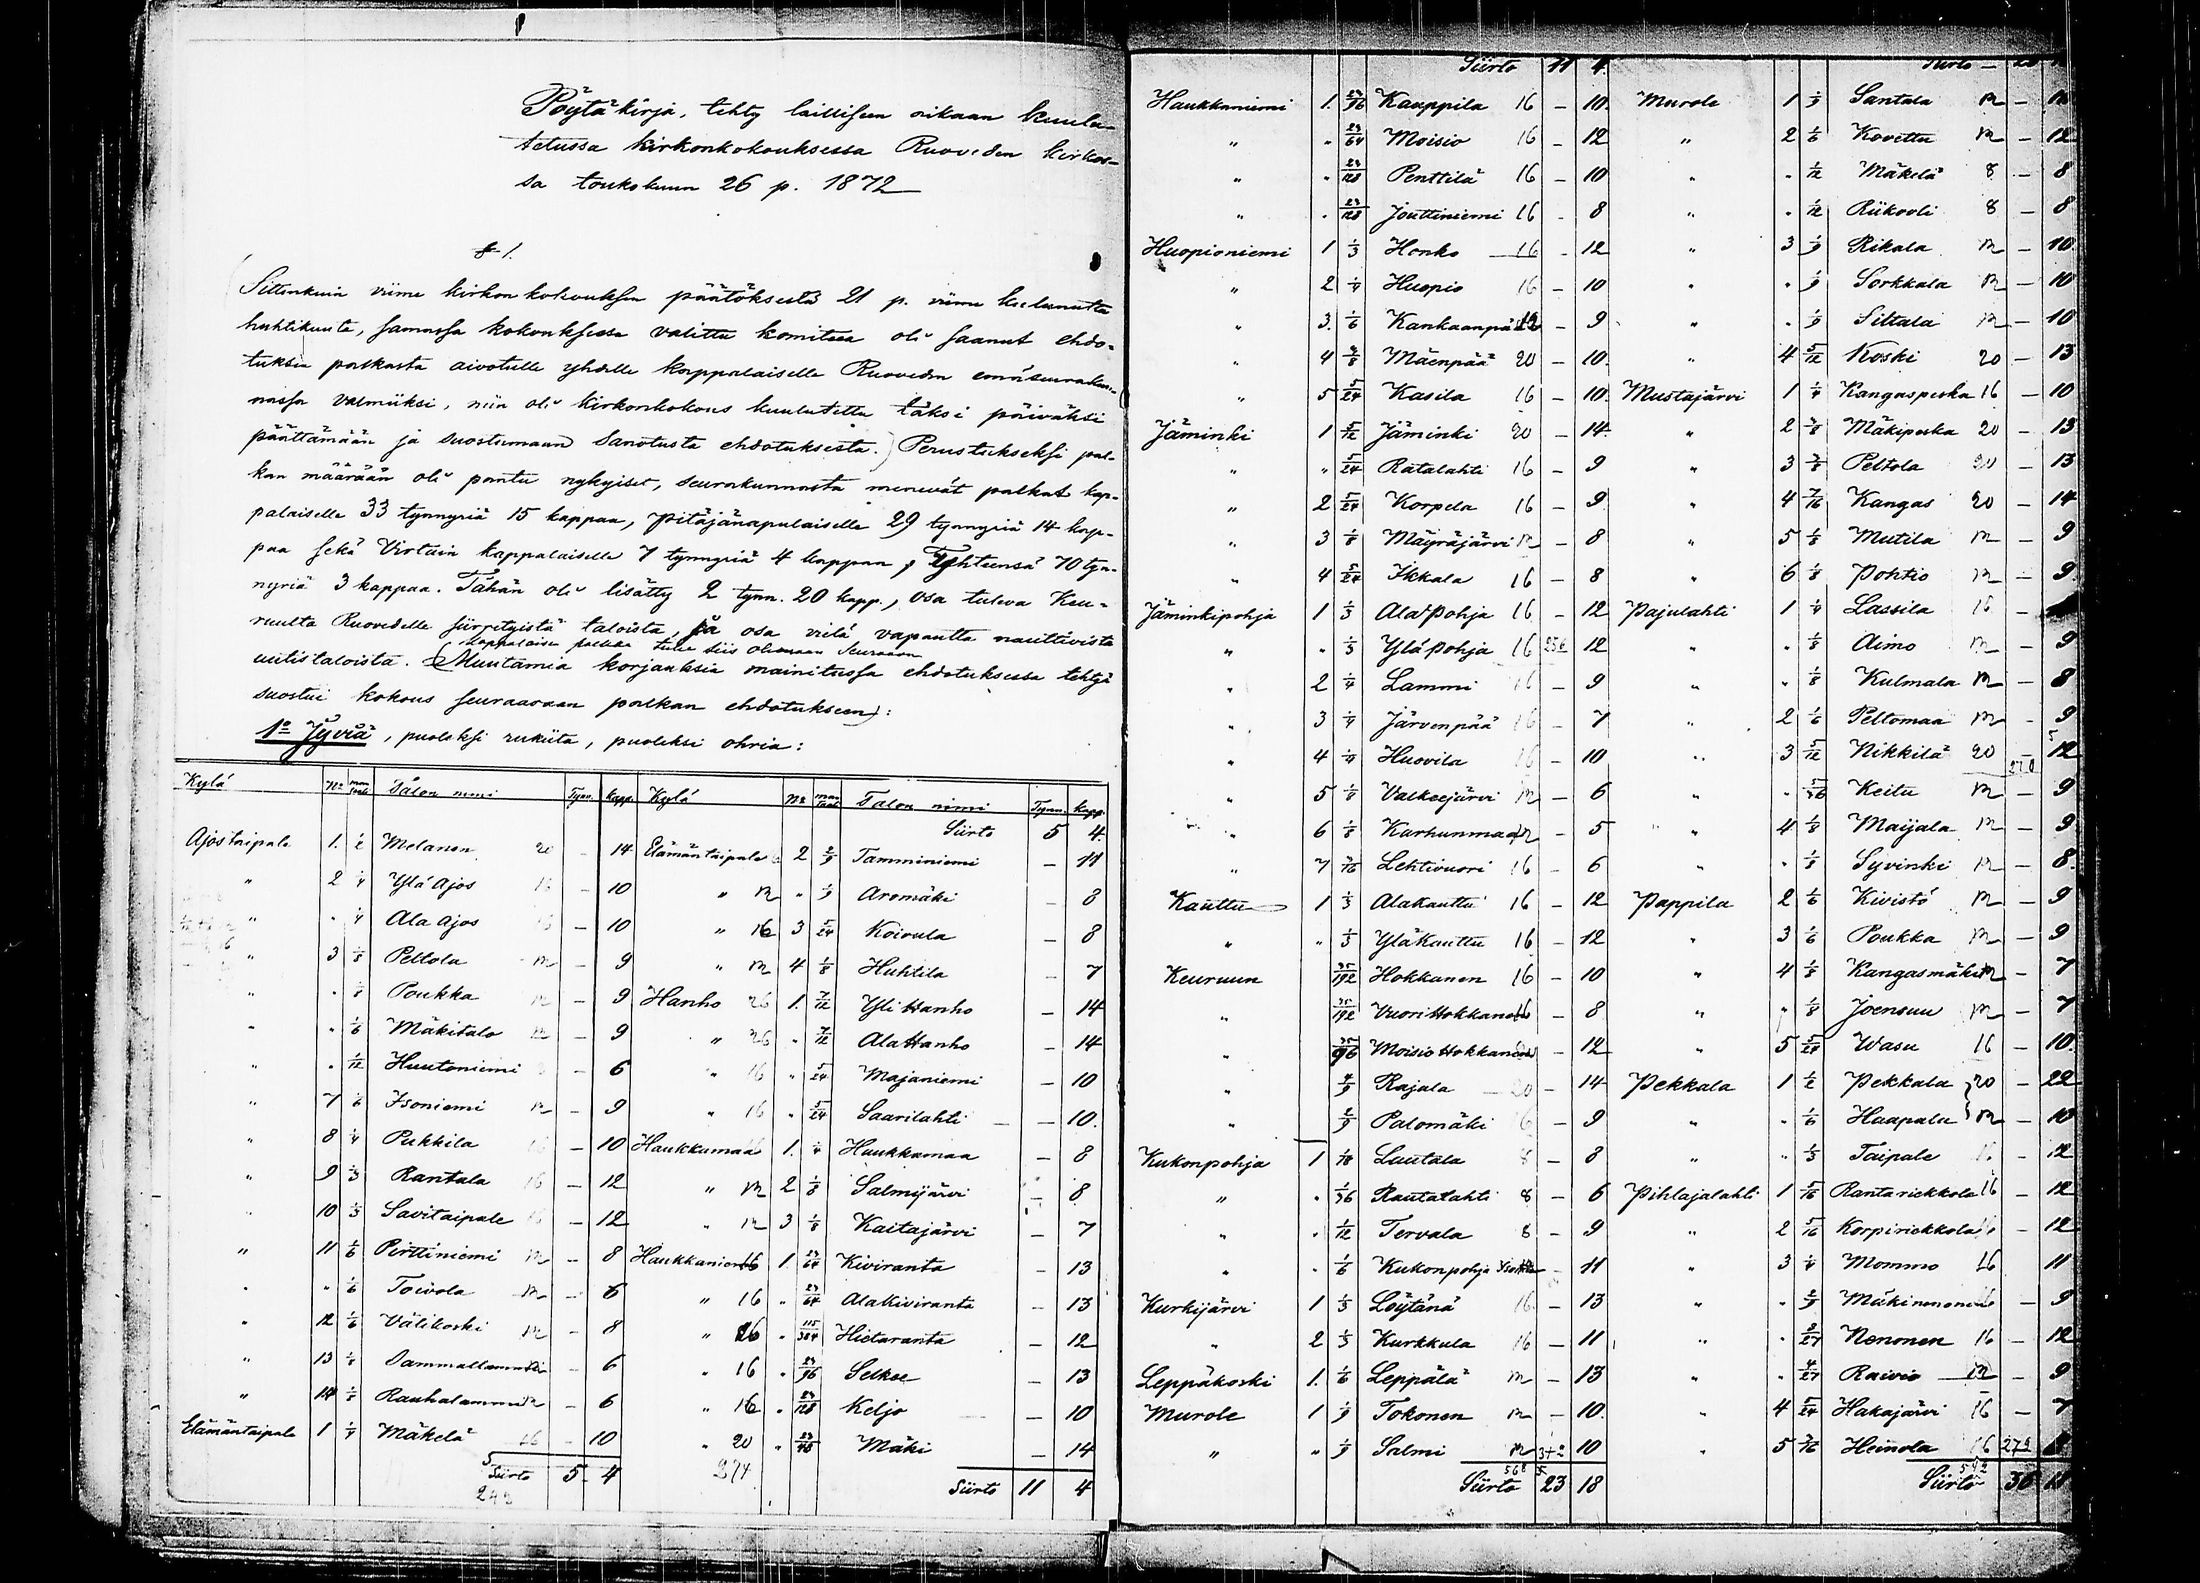 Pöytäkirja, tehty laillisen aikaan kuulu-
tetussa kirkonkokouksessa Ruoveden kirkos-
sa toukokuun 26 p. 1872
§ 1.
Sittenkuin viime kirkonkokouksen päätöksestä 21 p. viime kuluneuta
huhtikuuta, samassa kokouksessa valittu komitea oli saanut ehdo-
tuksia palkasta aivotulle yhdelle kappalaiselle Ruoveden emäseurakun-
nassa valmiiksi, niin oli kirkonkokous kuulutettu täksi päiväksi
päättämään ja suostumaan sanotusta ehdotuksesta. Perustukseksi pal-
kan määrään oli pantu nykyiset, seurakunnasta menevät palkat kap-
palaiselle 33 tynnyriä 15 kappaa, pitäjänapulaiselle 29 tynnyriä 14 kap-
paa sekä Virtain kappalaiselle 7 tynnyriä 4 kappaa, Yhteensä 70 tyn-
nyriä 3 kappaa. Tähän oli lisätty 2 tynn. 20 kapp., osa tuleva Keu-
ruulta Ruovedelle siirretyistä taloista, ja osa vielä vapautta nauttivista
kappalaisen palkka tulee siis olemaan seuraava
uutistaloista. Muutamia korjauksia mainitussa ehdotuksessa tehtyä
suostui kokous seuraavaan palkan ehdotukseen:
1o Jyviä, puoleksi rukiita, puoleksi ohria:
Kylä No man taal Talon nimi Tynn. kapp.
Ajostaipale 1. 1/2 Melanen 20 – 14
" 2 1/4 Ylä Ajos 16 – 10
" " 1/4 Ala Ajos 16 – 10
" 3 1/8 Peltola – 9
" " 1/8 Poukka – 9
" " 1/6 Mäkitalo – 9
" " 1/12 Huutoniemi – 6
" 7 1/6 Isoniemi – 9
" 8 1/4 Pukkila – 10
" 9 1/3 Rantala 16 – 12
" 10 1/3 Savitaipale – 12
" 11 1/6 Pirttiniemi – 8
" " 1/6 Toivola – 6
" 12 1/6 Välikoski – 8
" 13 1/8 Sammallammi – 6
" 14 1/8 Rauhalammi – 6
Elämäntaipale 1 1/4 Mäkelä 16 – 10
Siirto 5 4
Kylä No man taal Talon nimi Tynn. kapp.
Siirto 5 4.
Elämäntaipale 2 2/9 Tamminiemi – 11
" " 1/9 Aromäki – 8
" 16 3 5/24 Koivula – 8
" 4 1/8 Huhtila – 7
Hanho 26 1. 7/12 Yli Hanho – 14
" 26 " 7/12 Ala Hanho – 14
" 16 " 5/24 Majaniemi – 10
" 16 " 5/24 Saarilahti – 10.
Haukkamaa 1. 1/4 Haukkamaa – 8
" 2 1/8 Salmijärvi – 8
" 3 1/8 Kaitajärvi – 7
Haukkaniemi 16 1. 23/64 Kiviranta – 13
" 16 " 23/64 Alakiviranta – 13
" 16 " 115/384 Hietaranta – 12
" 16 " 23/96 Selkee – 13
" 16 " 23/128 Keljo – 10
" 20 " 23/48 Mäki – 14
274
Siirto 11 4
Siirto 11 4.
Haukkaniemi 1. 23/96 Kauppila 16 – 10.
" " 23/64 Moisio 16 – 12
" " 23/128 Penttilä 16 – 10
" " 23/128 Jouttiniemi 16 – 8
Huopioniemi 1 1/3 Honko 16 – 12
" 2 1/4 Huopio 16 – 10
" 3. 1/6 Kankaanpää – 9
" 4 Mäenpää 20 – 10.
" 5 5/24 Kasila 16 – 10.
Jäminki 1 5/12 Jäminki 20 – 14.
" " 5/24 Ratalahti 16 – 9
" 2 5/24 Korpela 16 – 9
" 3 1/8 Mäyräjärvi – 8
" 4 5/24 Ikkala 16 – 8
Jäminkipohja 1 1/3 Ala Pohja 16 – 12
" " 1/3 Ylä Pohja 16 256 12
" 2 1/4 Lammi 16 – 9
" 3 1/4 Järvenpää 16 – 7
" 4 1/4 Huovila 16 – 10
" 5 1/8 Valkeejärvi – 6
" 6 1/8 Karhunmaa – 5
" 7 3/16 Lehtivuori 16 – 6
Kauttu 1 1/3 Alakauttu 16 – 12
" " 1/3 Yläkauttu 16 – 12
Keuruun 35/192 Hokkanen 16 – 10
" 35/192 Vuori Hokkanen 16 – 8
" 35/96 Moisio Hokkanen – 12
" 4/9 Rajala 20 – 14
" 2/9 Palomäki 16 – 9
Kukonpohja 1 1/18 Lautala 8 – 8
" " 1/36 Rautalahti 8 – 6
" " 1/12 Tervala 8 – 9
" " 1/6 Kukonpohja – 11
Kurkijärvi 1 1/3 Löytänä 16 – 13
" 2 1/3 Kurkkula 16 – 11
Leppäkoski 1. 1/6 Leppälä – 13
Murole 1 1/9 Tokonen – 10.
" " 1/9 Salmi 342 10
568
Siirto 23 18
Siirto –
Murole 1 1/9 Santala –
" 2 1/6 Kovettu – 12
" " 1/12 Mäkelä 8 – 8
" " 1/12 Riikooli 8 – 8
" 3 1/9 Rikala – 10
" " 1/9 Sorkkala – 10
" " 1/9 Siltala – 10
" 4 5/12 Koski 20 – 13
Mustajärvi 1 1/4 Kangasperka 16 – 10
" 2 3/8 Mäkiperka 20 – 13
" 3 3/8 Peltola 20 – 13
" 4 7/16 Kangas 20 – 14
" 5 1/8 Mutila – 9
" 6 1/8 Pohtio – 9.
Pajulahti 1 1/4 Lassila 16 –
" " 1/8 Aimo – 9
" " 1/8 Kulmala – 8
" 2 1/6 Peltomaa – 9
" 3 5/12 Nikkilä 20 – 12
" " 5/36 Keitu – 9
" 4 1/8 Maijala – 9
" " 1/8 Syvinki – 8.
Pappila 2 1/6 Kivistö – 9
" 3 1/6 Poukka – 9
" 4 1/8 Kangasmäki – 7
" " 1/8 Joensuu – 7
" 5 5/24 Wasu 16 – 10.
Pekkala 1 1/2 Pekkala 20 – 22
" " 1/6 Haapala – 10
" " 1/3 Taipale 16 – 12
Pihlajalahti 1 5/16 Rantariekkola 16 – 12
" 2 5/16 Korpiriekkola – 12
" 3 1/4 Mommo 16 11
" " 2/9 Mäkinenonen – 9
" " 8/27 Nenonen 16 – 12
" " 4/27 Raivio – 9
" 4 5/24 Hakajärvi 16 – 7
" 5 3/16 Heinola 16 272
Siirto 36 18